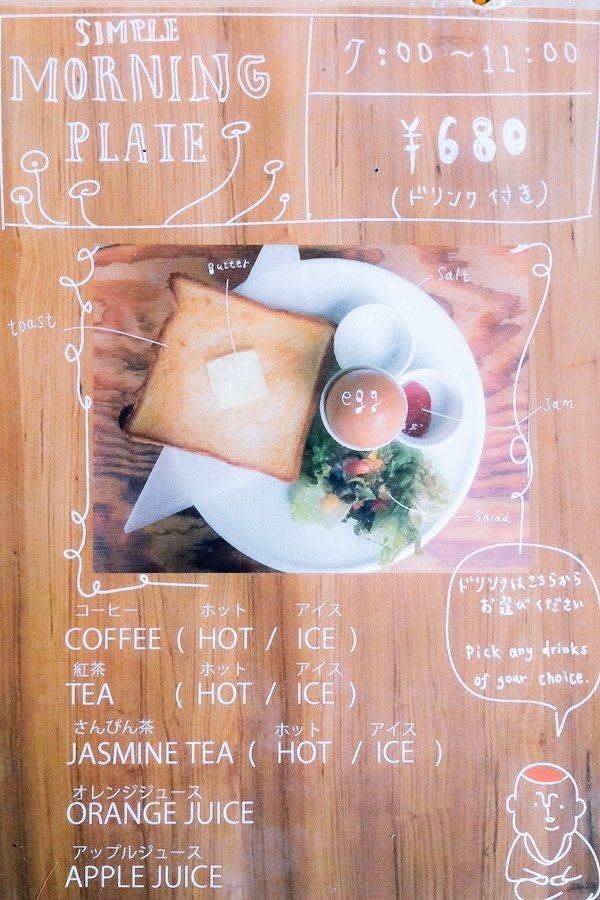 SIMPLE
MORNING
PLATE
7:00〜11:00
¥680
(ドリンク付き)
Butter
Salt
toast
egg
Jam
Salad
ドリンクはこちらから
お選びください
Pick any drinks
of your choice.
コーヒー ホット アイス
COFFEE ( HOT / ICE )
紅茶 ホット アイス
TEA ( HOT / ICE )
さんぴん茶 ホット アイス
JASMINE TEA ( HOT / ICE )
オレンジジュース
ORANGE JUICE
アップルジュース
APPLE JUICE